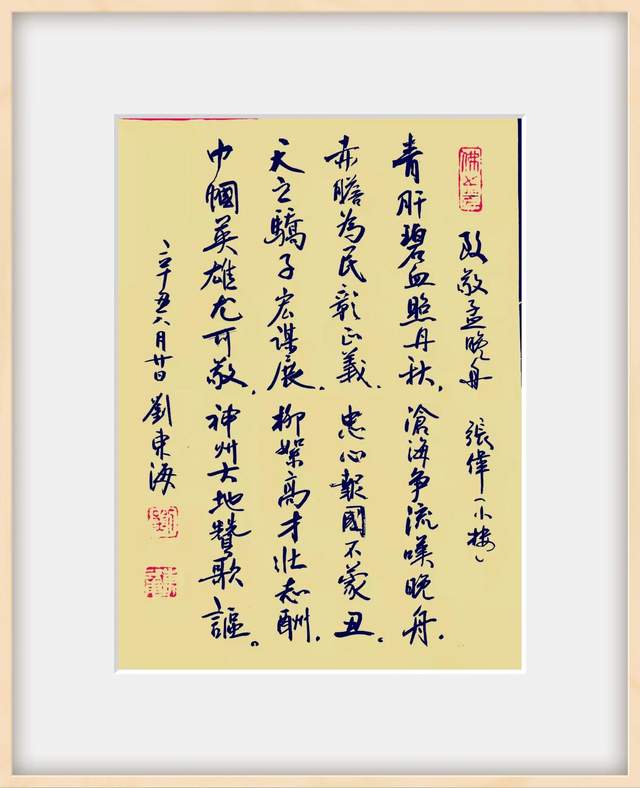 致敬孟晚舟 張偉（小樓）
青肝碧血照丹秋，滄海争流嘆晚舟。
赤膽為民彰正義，忠心報國不蒙丑。
天之驕子宏謀展，柳絮高才壯志酬，
巾幗英雄尤可敬，神州大地贊歌謳。
辛丑八月廿日劉東海